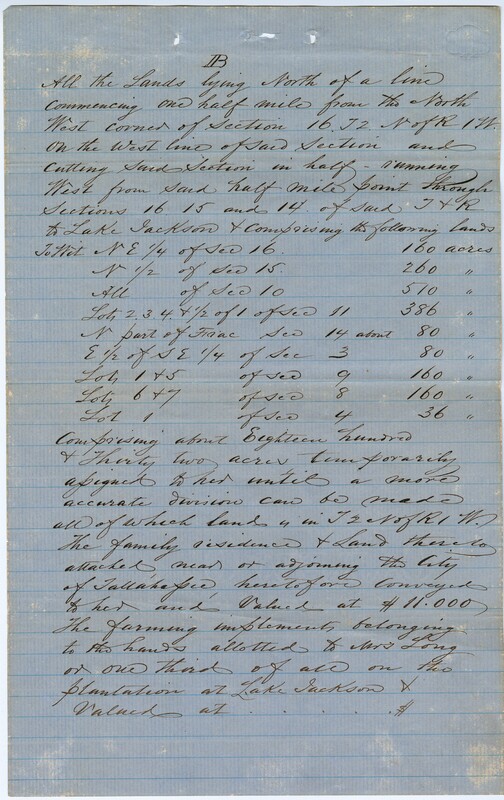 IIB
All the Lands lying North of a line
Commencing one half mile from the North
West corner of Section 16. T2 N of R 1 W.
on the West line of said Section and
Cutting said Section in half - running
West from said half mile point through
Sections 16 15 and 14 of said T & R
to Lake Jackson & Comprising the following lands
To Wit N E 1/4 of Sec 16. 160 acres
N 1/2 of Sec 15. 260 "
All of Sec 10 510 "
Lots 2 3 4 & 1/2 of 1 of Sec 11 386 "
N part of Frac Sec 14 about 80 "
E 1/2 of S E 1/4 of Sec 3 80 "
Lots 1 & 5 of Sec 9 160 "
Lots 6 & 7 of Sec 8 160 "
Lot 1 of Sec 4 36 "
Comprising about Eighteen hundred
& Thirty two acres temporarily
assigned to her until a more
accurate division can be made
all of which land is in T 2 N of R 1 W.
The family residence & Land thereto
attached near or adjoining the City
of Tallahassee, heretofore Conveyed
to her and Valued at $11.000
The farming implements belonging
to the hands allotted to Mrs Long
or one third of all on the
plantation at Lake Jackson &
Valued at . . . . . . $